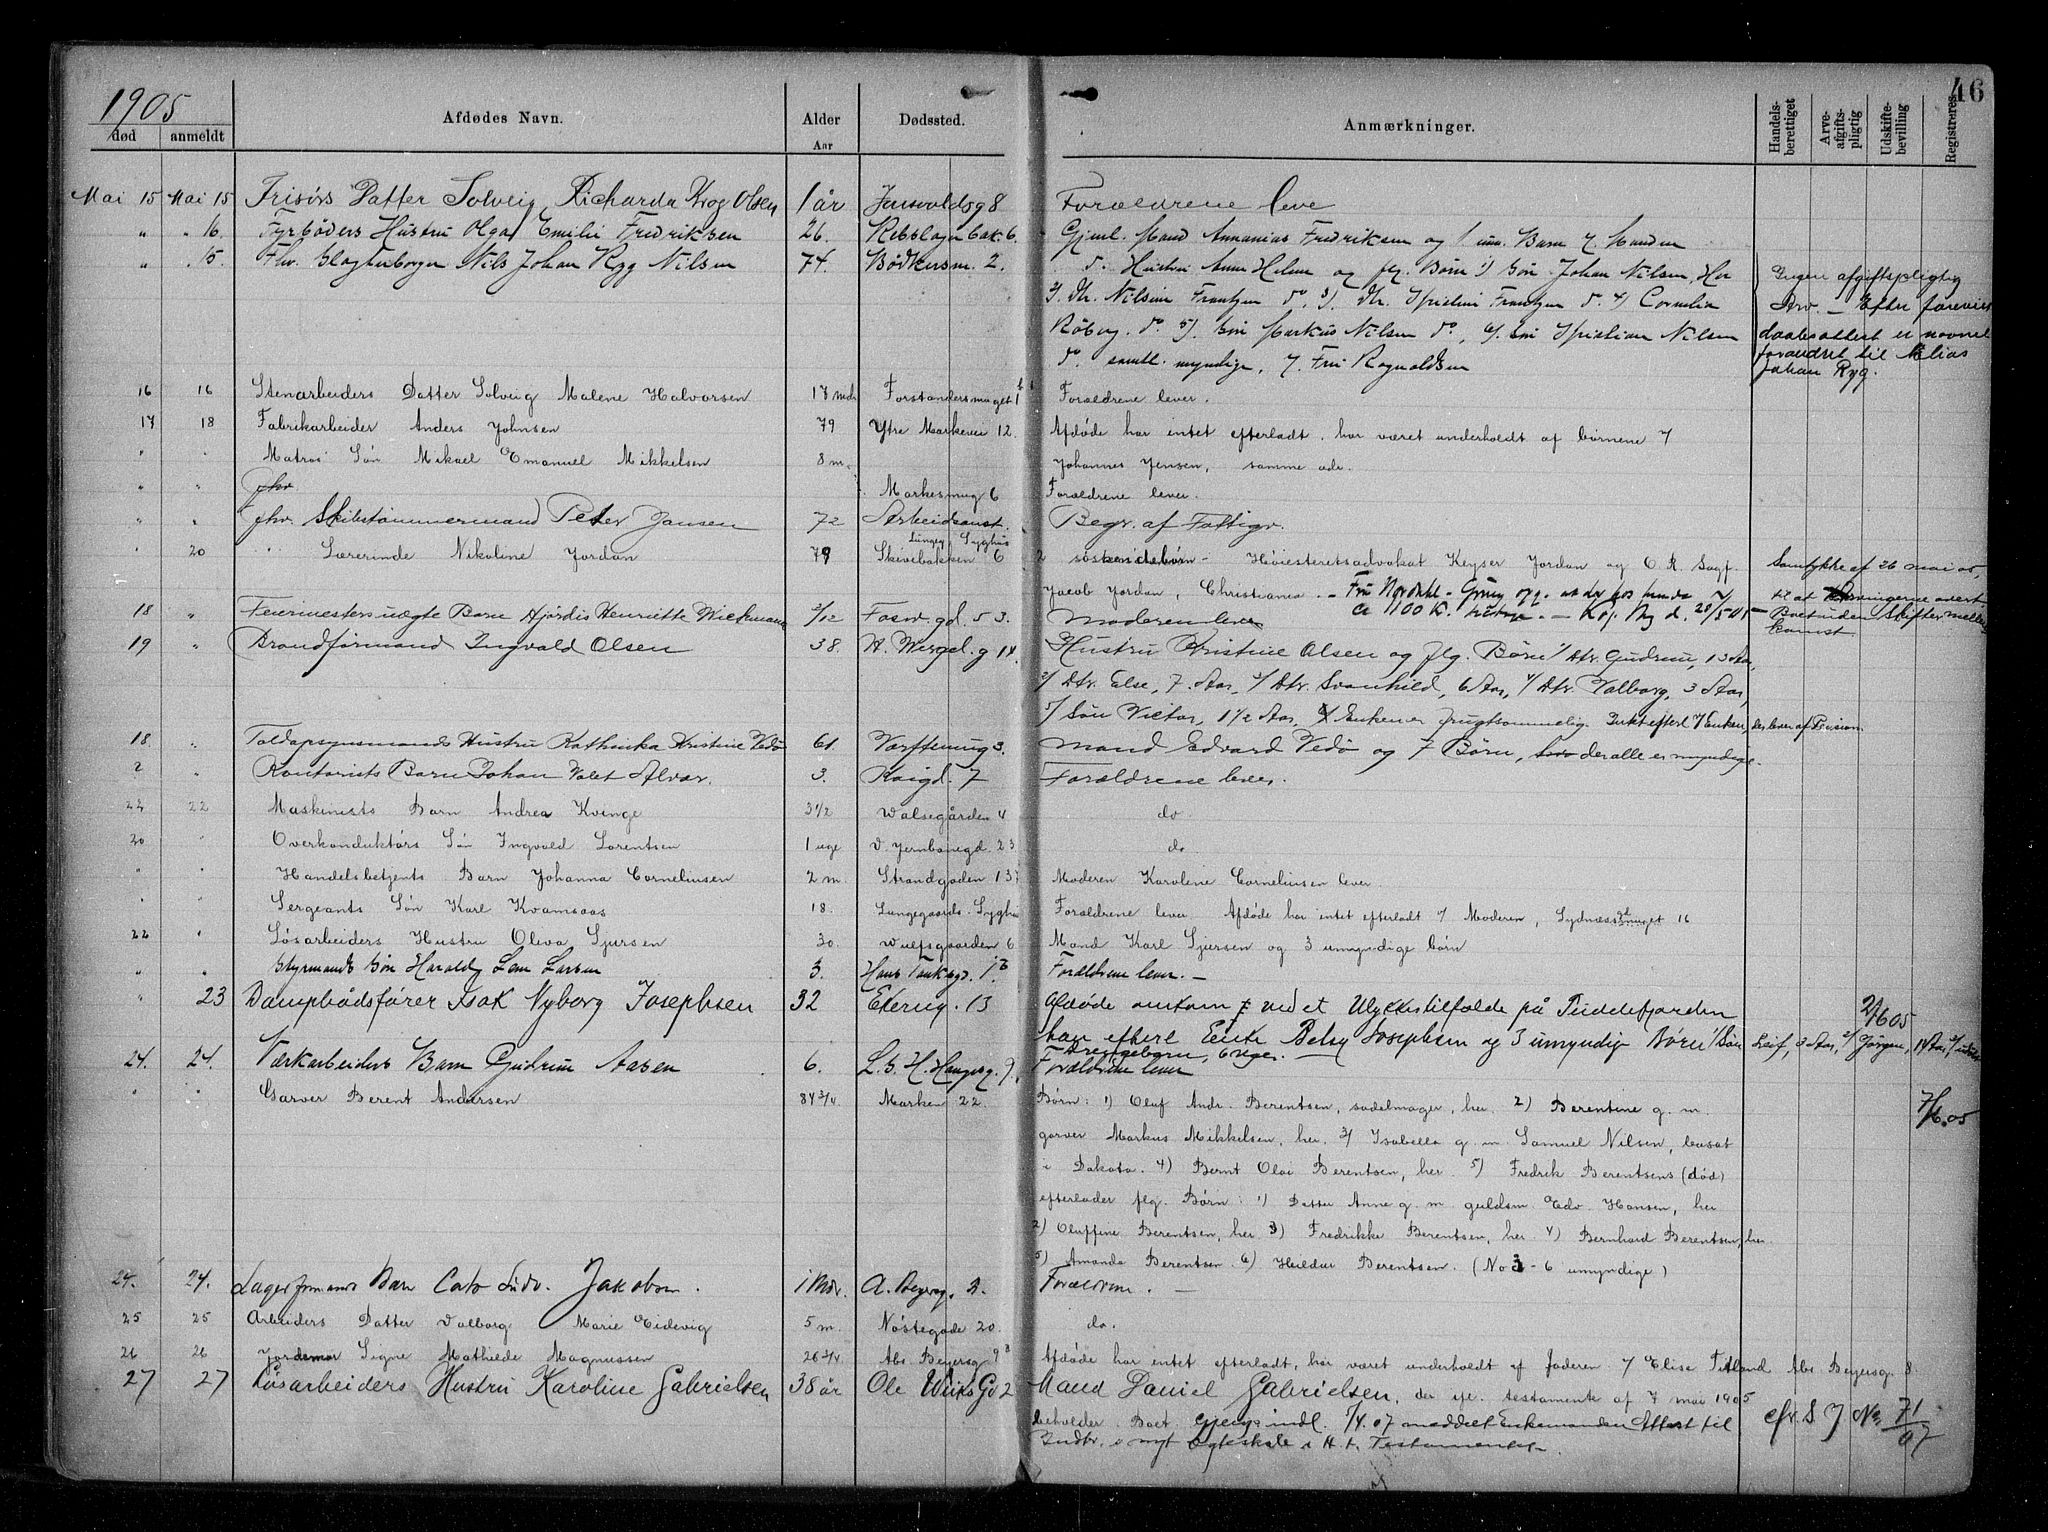 46
1905
død anmeldt Afdødes Navn. Alder Aar Dødssted. Anmærkninger. Handelsberettiget Arveafgiftspligtig Udskiftebevilling Registreres
Mai 15 Mai 15 Frisørs Datter Solveig Richarda Krog Olsen 1 år 8 Forældrene leve
" " 16. Fyrbøders Hustru Olga Emilie Fredriksen 26. Rebslagerbak. 6. Gjenl. Mand Annanias Fredriksen og 1 um. Barn 7. Manden
" " 15. Fhv. Slagterborger Nils Johan Ryg Nilsen 74. Bødkersm. 2. do. Hustru Anna Helene og flg. Børn 1) Søn Johan Nilsen, Her
2). Dtr. Nilsine Frantzen do, 3). Dtr. Frantzen do. 4) Cornelia
Røberg. do 5). Søn Markus Nilsen do, 6). Søn Kristian Nilsen
do. samtl. myndige, 7. Fru Ragnaldsen
Ingen afgiftspligtig
Arv — Efter forevist
daabsattest er navnet
forandret til Nilias
Johan Ryg.
16 16 Stenarbeiders Datter Solveig Malene Halvorsen 17 mdr Forstandersmuget 1 Forældrene lever.
17 18 Fabrikarbeider Anders Johnsen 79 Ytre Markevei 12. Afdøde har intet efterladt, har været underholdt af børnene 7
" " Matros Søn Mikael Emanuel Mikkelsen 8 m. Johannes Jensen, samme ads.
" " fhv. Markesmug 6 Forældrene lever.
" " fhv. Skibstømmermand Peter Jansen 72 Arbeidsanst. Begr. af Fattigv.
" 20 Lærerinde Nikoline Jordan 79 Lungeg. Syghus Skivebakken 6 2 søskendebørn - Høiesteretsadvokat Keyser Jordan og O. R. Sagf. Samtykke af 26 mai 05,
Jacob Jordan, Christiania. — Fru Nordahl-Grieg opg. at der hos hende
ca 1100 K.
til at Arvingerne overt
Boet uden Skiftes mellemkomst
18 " Feiermesters uægte Barn Hjørdis Henriette Wiekmann 3/12 Fosw. gd. 53. Moderen lever
19 " Brandformand Ingvald Olsen 38. H. Wergel. g 14. Hustru Kristine Olsen og flg. Børn 1/ Dtr. Gudrun, 13 Aar,
2/ Dtr. Else, 7. Aar, 3/ Dtr. Svanhild, 6 Aar, 4/ Dtr. Valborg, 3 Aar,
5/ Søn Victor, 1 1/2 Aar, Enken er frugtsommelig. Intet efterl. 7/ Enken, der lever af Pension.
18. " Toldopsynsmands Hustru Kathinka Kristine Vedø 61. Værftsmug 3. Mand Edvard Vedø og 7 Børn, der alle er myndige.
2 " Kontorists Barn Johan Valet Alver. 3. Kaigd. 7 Forældrene lever.
22 22 Maskinists Barn Andrea Kvinge 3 1/2 Walsegården 4 do
20 " Overkonduktørs Søn Ingvald Lorentsen 1 uge V. Jernbanegd. 23 do
" " Handelsbetjents Barn Johanna Corneliusen 2 m. Strandgaden 137 Moderen Karoline Corneliusen lever.
" " Sergeants Søn Karl Kvamsaas 18. Lungegaards. Syghus Forældrene lever. Afdøde har intet efterladt 7/ Moderen, Sydnæssmuget 16
22 " Løsarbeiders Hustru Oleva Sjursen 30. Wulfsgaarden 6 Mand Karl Sjursen og 3 umyndige børn
" " Styrmands Søn Harald Lem Larsen 3. Hans Tanksgd. 13 Forældrene lever. —
" 23 Dampbådsfører Isak Nyborg Josephsen 32 Ekerng. 13 Afdøde omkom ved et Ulykkestilfælde på Puddefjorden
han efterl Enke Betsy Josephsen og 3 umyndig Børn 1/ Søn Leif, 3 Aar, 2/ Jørgen, 1 1/2 Aar, 3/ udøbt
Drengebarn, 6 uger. —
2/6 05
24. 24. Værkarbeiders Barn Gudrun Aasen 6. L. S. H. Haugesg. 9. Forældrene lever
" " Garver Berent Andersen 84 3/4 Marken 22. Børn: 1) Oluf Andr. Berentsen, sadelmager, her. 2) Berentine g. m. 7/6.05
garver Markus Mikkelsen, her. 3/ Isabella g. m. Samuel Nilsen, bosat
i Dakota. 4) Bernt Olai Berentsen, her. 5) Fredrik Berentsens (død)
efterlader flg. Børn: 1) Datter Anne g. m. guldsm Edv. Hansen, her
2) Oluffine Berentsen, her. 3) Fredrikke Berentsen, her. 4) Bernhard Berentsen, her.
5) Amanda Berentsen. 6) Heildar Berentsen. (No 3 - 6 umyndige)
24. 24. Lagerformands Barn Cato Ludv. Jakobsen. 1 Mdr. A. Beyersg. 3. Forældrene. —
25 25 Arbeiders Datter Valborg Marie Eidevig 5 m. Nøstegade 20. do.
26 26 Jordemor Signe Mathilde Magnussen 26 3/4 Abs. Beyersg 9 Afdøde har intet efterladt, har været underholdt af faderen 7 Elise Titland Abs. Beyersg. 8.
27 27 Løsarbeiders Hustru Karoline Gabrielsen 38 år Ole Weiks Gd 2 Mand Daniel Gabrielsen, der ifl. testamente af 7 mai 1905
beholder Boet. 7/4. 07 meddelt Enkemanden Attest til
Indtr. i nyt Ægteskab i H. t. Testamentet.
cfr. S. J No 71/07